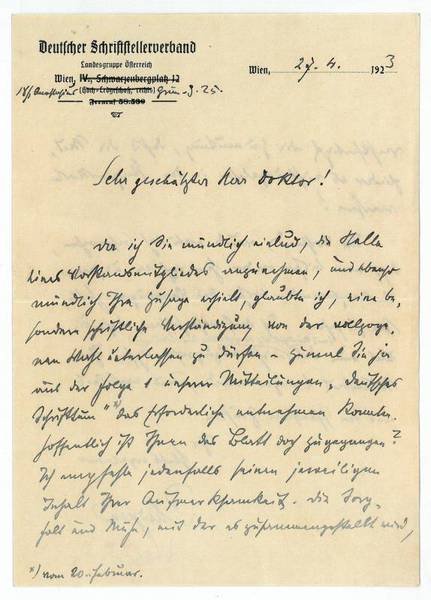 Deutscher Schriftstellerverband
Landesgruppe Österreich
Wien, IV., Schwarzenbergplatz 12
(Hoch-Erdgeschoß, rechts)
Fernruf 58.530
Wien, 27. 4. 1923
Sehr geschätzter Herr Doktor!
Da ich Sie mündlich einlud, die Stelle
eines Vorstandsmitgliedes anzunehmen, und ebenso
mündlich Ihre Zusage erhielt, glaubte ich, eine be-
sondere schriftliche Verständigung von der vollzoge-
nen Wahl unterlassen zu dürfen – zumal Sie ja
aus der Folge 1 unserer Mitteilungen „Deutsches
Schrifttum" *) das Erforderliche entnehmen konnten.
Hoffentlich ist Ihnen das Blatt doch zugegangen?
Ich empfehle jedenfalls seinen jeweiligen
Inhalt Ihrer Aufmerksamkeit. Die Sorg-
falt und Mühe, mit der es zusammengestellt wird,
*) vom 20. Februar.